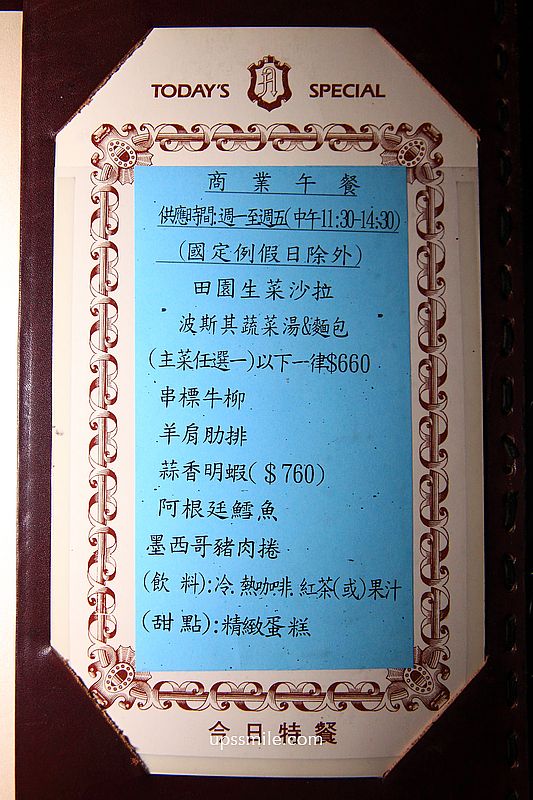 TODAY'S A SPECIAL
商業午餐
供應時間:週一至週五(中午11:30-14:30)
(國定例假日除外)
田園生菜沙拉
波斯其蔬菜湯&麵包
(主菜任選一)以下一律$660
串標牛柳
羊肩肋排
蒜香明蝦($760)
阿根廷鱈魚
墨西哥豬肉捲
(飲 料):冷.熱咖啡.紅茶(或)果汁
(甜點):精緻蛋糕
今日特餐
upssmile.com